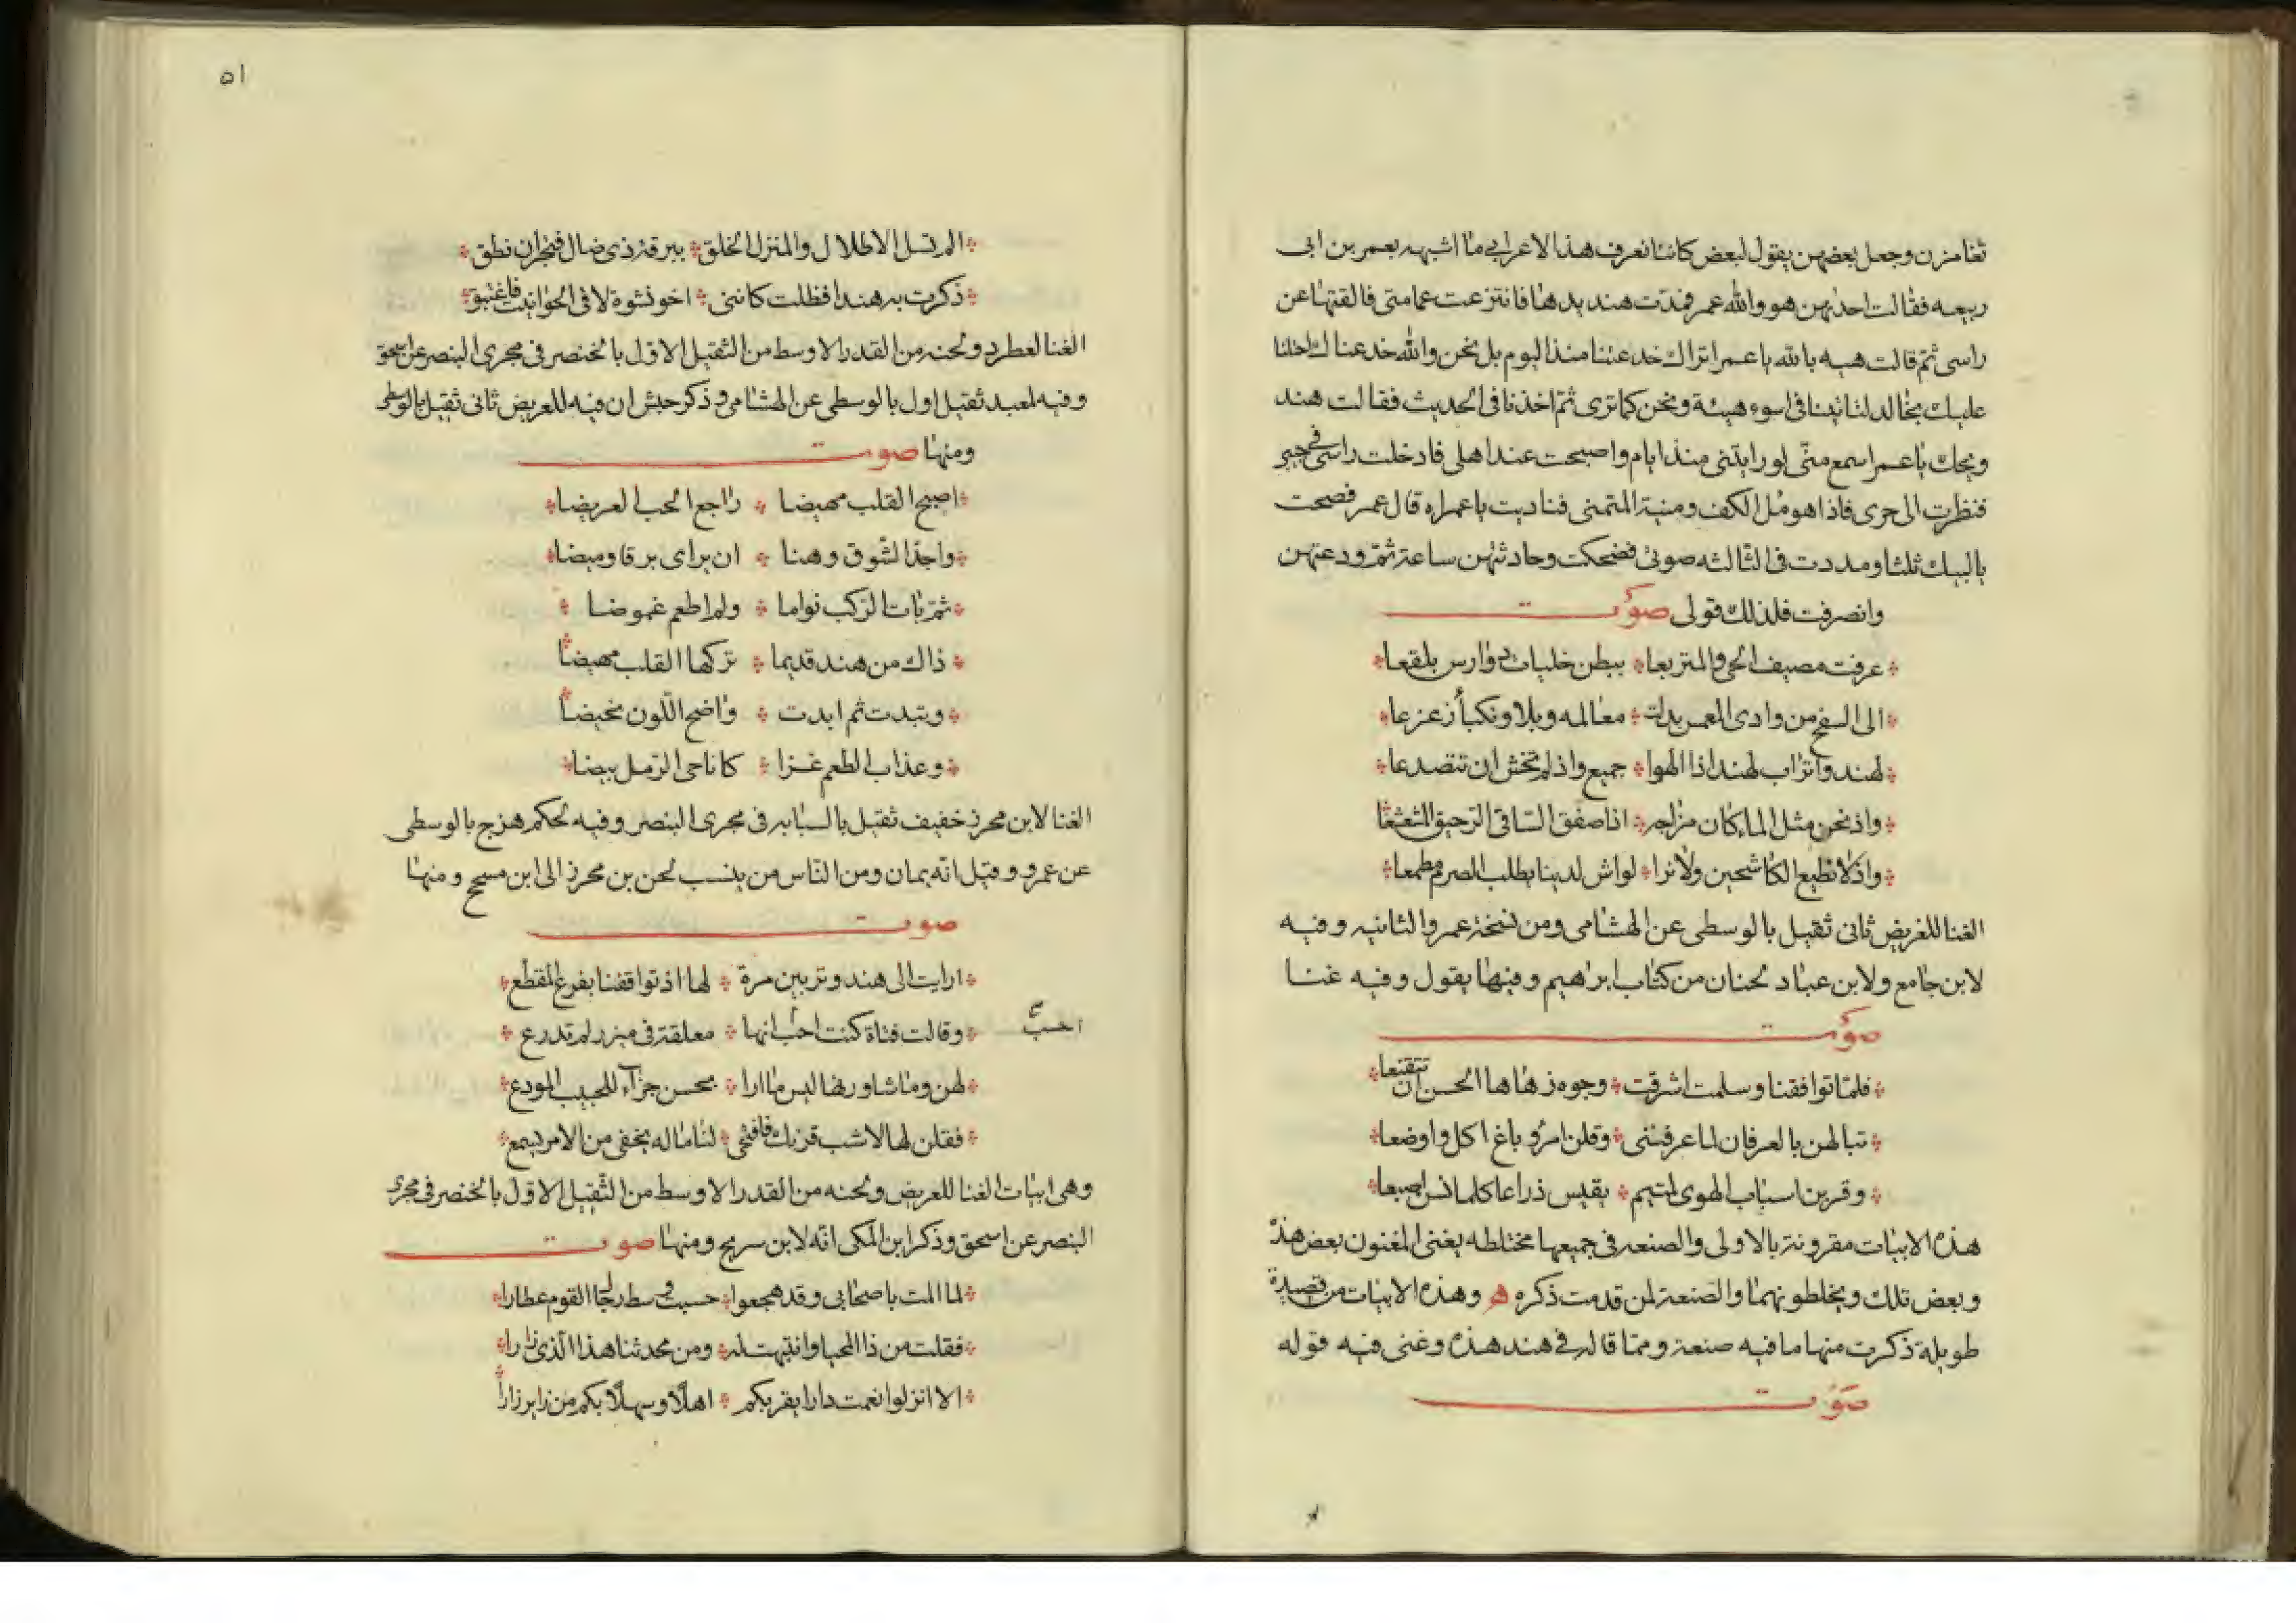 تغامزن وجعل بعضهن يقول لبعض كاننا نعرف هذا الاعرابي ما اشبهه بعمر بن ابى
ربيعه فقالت احدهن هو والله عمر فمدت هند يدها فانتزعت عمامتى فالقتها عن
راسى ثم قالت هيه بالله يا عمر اتراك خدعتنا منذ اليوم بل نحن والله خدعناك واحتلنا
عليك بخالد لتاتينا فى اسوء هيئة ونحن كما ترى ثم اخذنا فى الحديث فقالت هند
ويحك يا عمر اسمع منى لو رايتنى منذ ايام واصبحت عند اهلى فادخلت راسى فى جيبى
فنظرت الى حرى فاذا هو مل الكف ومنية المتمنى فناديت يا عمراه قال عمر فصحت
يا لبيك ثلثا ومددت فى الثالثه صوتى فضحكت وحادثتهن ساعة ثم ودعتهن
وانصرفت فلذلك قولى صوت
عرفت مصيف الحى والمتربعا ببطن خليات دوارس بلقعا
الى السفح من وادى المغمس بدلت معالمه وبلا ونكبأ زعزعا
لهند واتراب لهند اذ الهوا جميع واذ لم تخش ان تتصدعا
واذ نحن مثل الما كان مزاجه اذا صفق الساقى الرحيق المشعشعا
واذ لا نطيع الكاشحين ولا نرا لواش لدينا يطلب الصرم مطمعا
الغنا للغريض ثانى ثقيل بالوسطى عن الهشامى ومن نسخة عمرو الثانيه وفيه
لابن جامع ولابن عباد لحنان من كتاب ابراهيم وفيها يقول وفيه غنا
صوت
فلما توافقنا وسلمت اشرقت وجوه زهاها الحسن ان تتقنعا
تبا لهن بالعرفان لما عرفننى وقلن امرؤ باغ اكل واوضعا
وقربن اسباب الهوى لمتيم يقيس ذراعا كلما قسن اصبعا
هذه الابيات مقرونة بالاولى والصنعه فى جميعها مختلطه يغنى المغنون بعض هذه
وبعض تلك ويخلطونهما والصنعة لمن قدمت ذكره ه وهذه الابيات من قصيدة
طويلة ذكرت منها ما فيه صنعة ومما قاله فى هند هذه وغنى فيه قوله
صوت
٥١
الم تسل الاطلال والمنزل الخلق ببرقة ذى ضال فيخبران نطق
ذكرت به هندا فظلت كاننى اخو نشوة لاقى الحوانيت فاغتبق
الغنا لعطرد ولحنه من القدر الاوسط من الثقيل الاول بالخنصر فى مجرى البنصر عن اسحق
وفيه لمعبد ثقيل اول بالوسطى عن الهشامى وذكر حبش ان فيه للغريض ثانى ثقيل بالوسطى
ومنها صوت
اصبح القلب مهيضا راجع الحب العريضا
واجد الشوق وهنا ان براى برقا وميضا
ثم بات الركب نواما ولم اطعم غموضا
ذاك من هند قديما تركها القلب مهيضا
وتبدت ثم ابدت واضح اللون نحيضا
وعذاب الطعم غزا كاناحى الرمل بيضا
الغنا لابن محرز خفيف ثقيل بالسبابه فى مجرى البنصر وفيه لحكم هزج بالوسطى
عن عمرو وقيل انه يمان ومن الناس من ينسب لحن بن محرز الى ابن مسجح ومنها
صوت
ارايت الى هند وتربين مرة لها اذ توافقنا بفرع المقطع
وقالت فتاة كنت احب انها معلقة فى ميزر لم تدرع
احب
لهن وما شاورنها ليس ما ارا بحسن جزآء للحبيب المودع
فقلن لها لا شب قرنك فافتحى لنا ما له يخفى من الامر يسمع
وهى ابيات الغنا للغريض ولحنه من القدر الاوسط من الثقيل الاول بالخنصر فى مجرى
البنصر عن اسحق وذكر ابن المكى انه لابن سريج ومنها صوت
لما المت باصحابى وقد هجعوا حسبت وسط رحال القوم عطارا
فقلت من ذا المحيا وانتبهت له ومن محدثنا هذا الذى زارا
الا انزلوا نعمت دارا بقربكم اهلا وسهلا بكم من زاير زارا